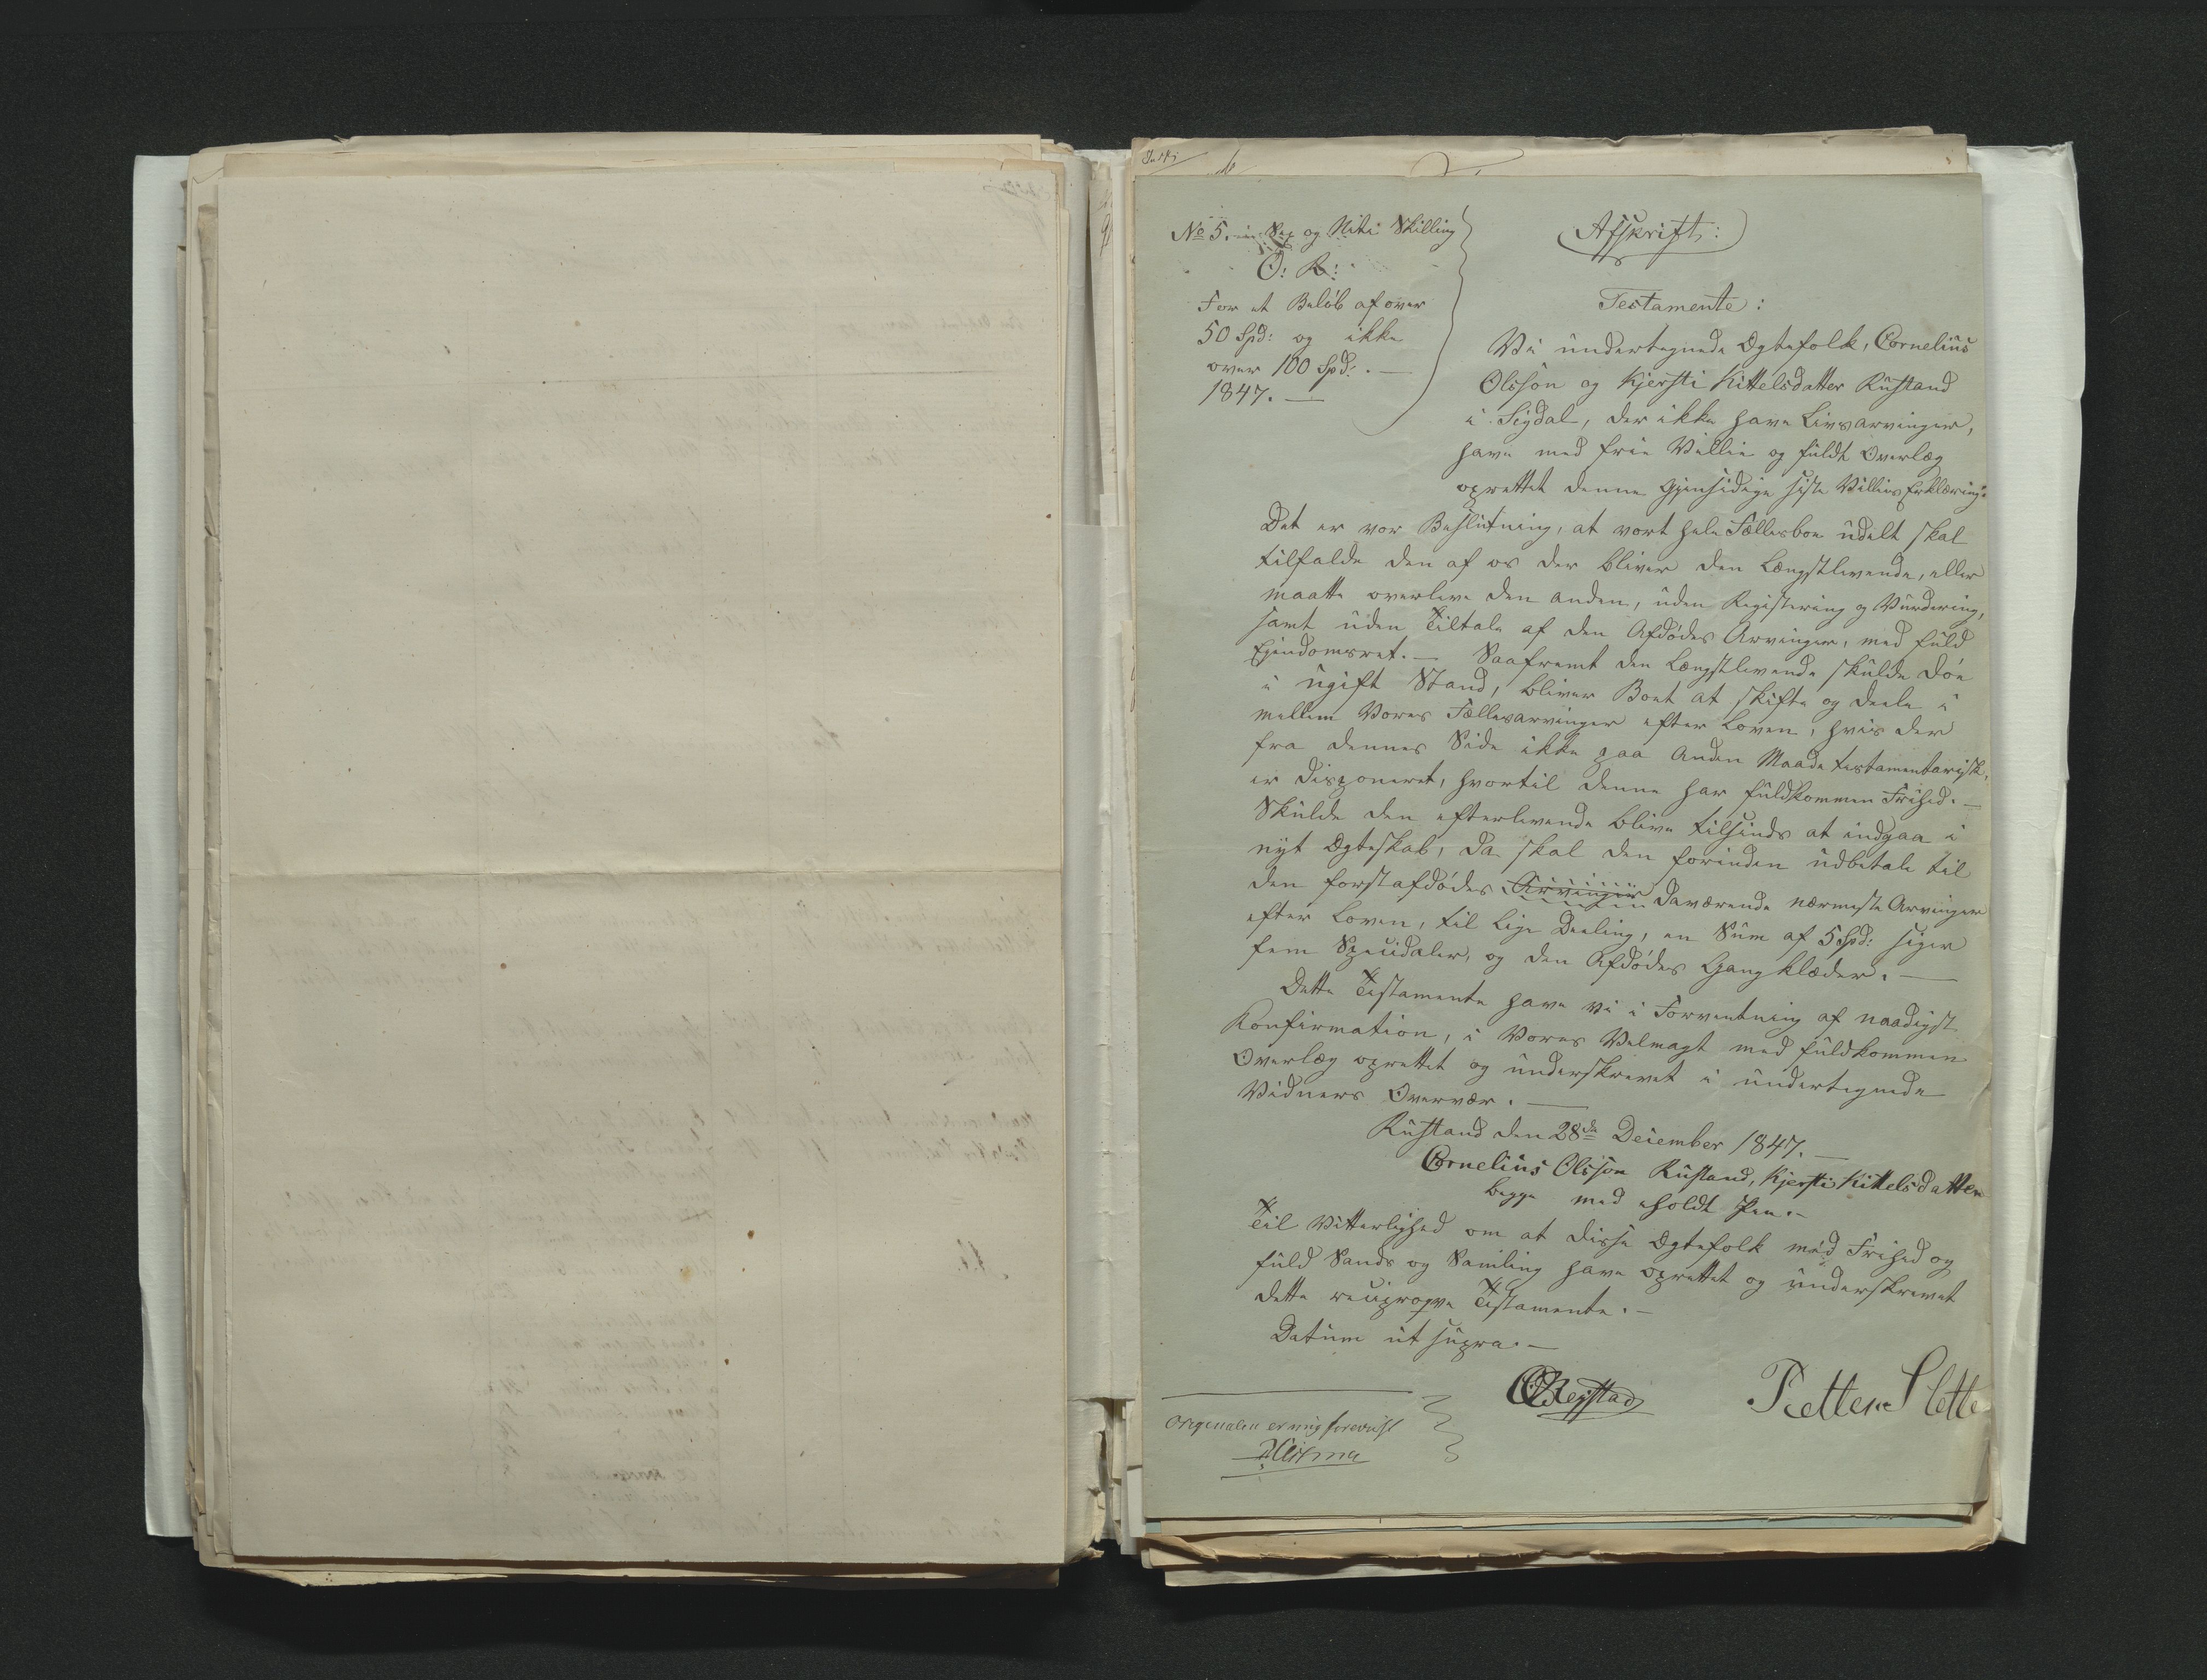 No 5. Sex og Niti Skilling
O: R:
For et Beløb af over
50 Spd: og ikke
over 100 Spd: . —
1847. —
Afskrift:
Testamente:
Vi undertegnede Ægtefolk, Cornelius
Olsson og Kjersti Kittelsdatter Rustand
i Sigdal, der ikke have Livsarvinger,
have med frie Villie og fuldt Overlæg
oprettet denne gjensidige siste Villies Erklæring:
Det er vor Beslutning, at vort hele Fællesboe udelt skal
tilfalde den af os der bliver den Længstlevende, eller
maatte overleve den anden, uden Registering og Vurdering,
samt uden Tiltale af den Afdødes Arvinger, med fuld
Ejendomsret. — Saafremt den Længstlevende skulde døe
i ugift Stand, bliver Boet at skifte og deele i
mellem Vores Fællesarvinger efter Loven, hvis der
fra dennes Side ikke paa anden Maade testamentarisk
er disponeret, hvortil denne har fuldkommen Frihed. —
Skulde den efterlevende blive tilsinds at indgaa i
nyt Ægteskab, da skal den forinden udbetale til
den førstafdødes Arvinger daværende nærmeste Arvinger
efter Loven, til lige Deeling, en Sum af 5 Spd: siger
fem Speciedaler, og den Afdødes Gangklæder. —
Dette Testamente have vi i Forventning af naadigst
Konfirmation, i Vores Velmagt med fuldkommen
Overlæg oprettet og underskrevet i undertegnede
Vidners Overvær. —
Rustand den 28de December 1847. —
Cornelius Olsson Rustand, Kjersti Kittelsdatter
begge med holdt Pen. —
Til Vitterlighed om at disse Ægtefolk med Frihed og
fuld Sands og Samling have oprettet og underskrevet
dette reciproqve Testamente. —
Datum ut supra. —
Petter Slette
Originalen er mig forevist